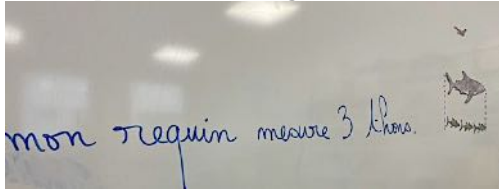 mon requin mesure 3 thons.